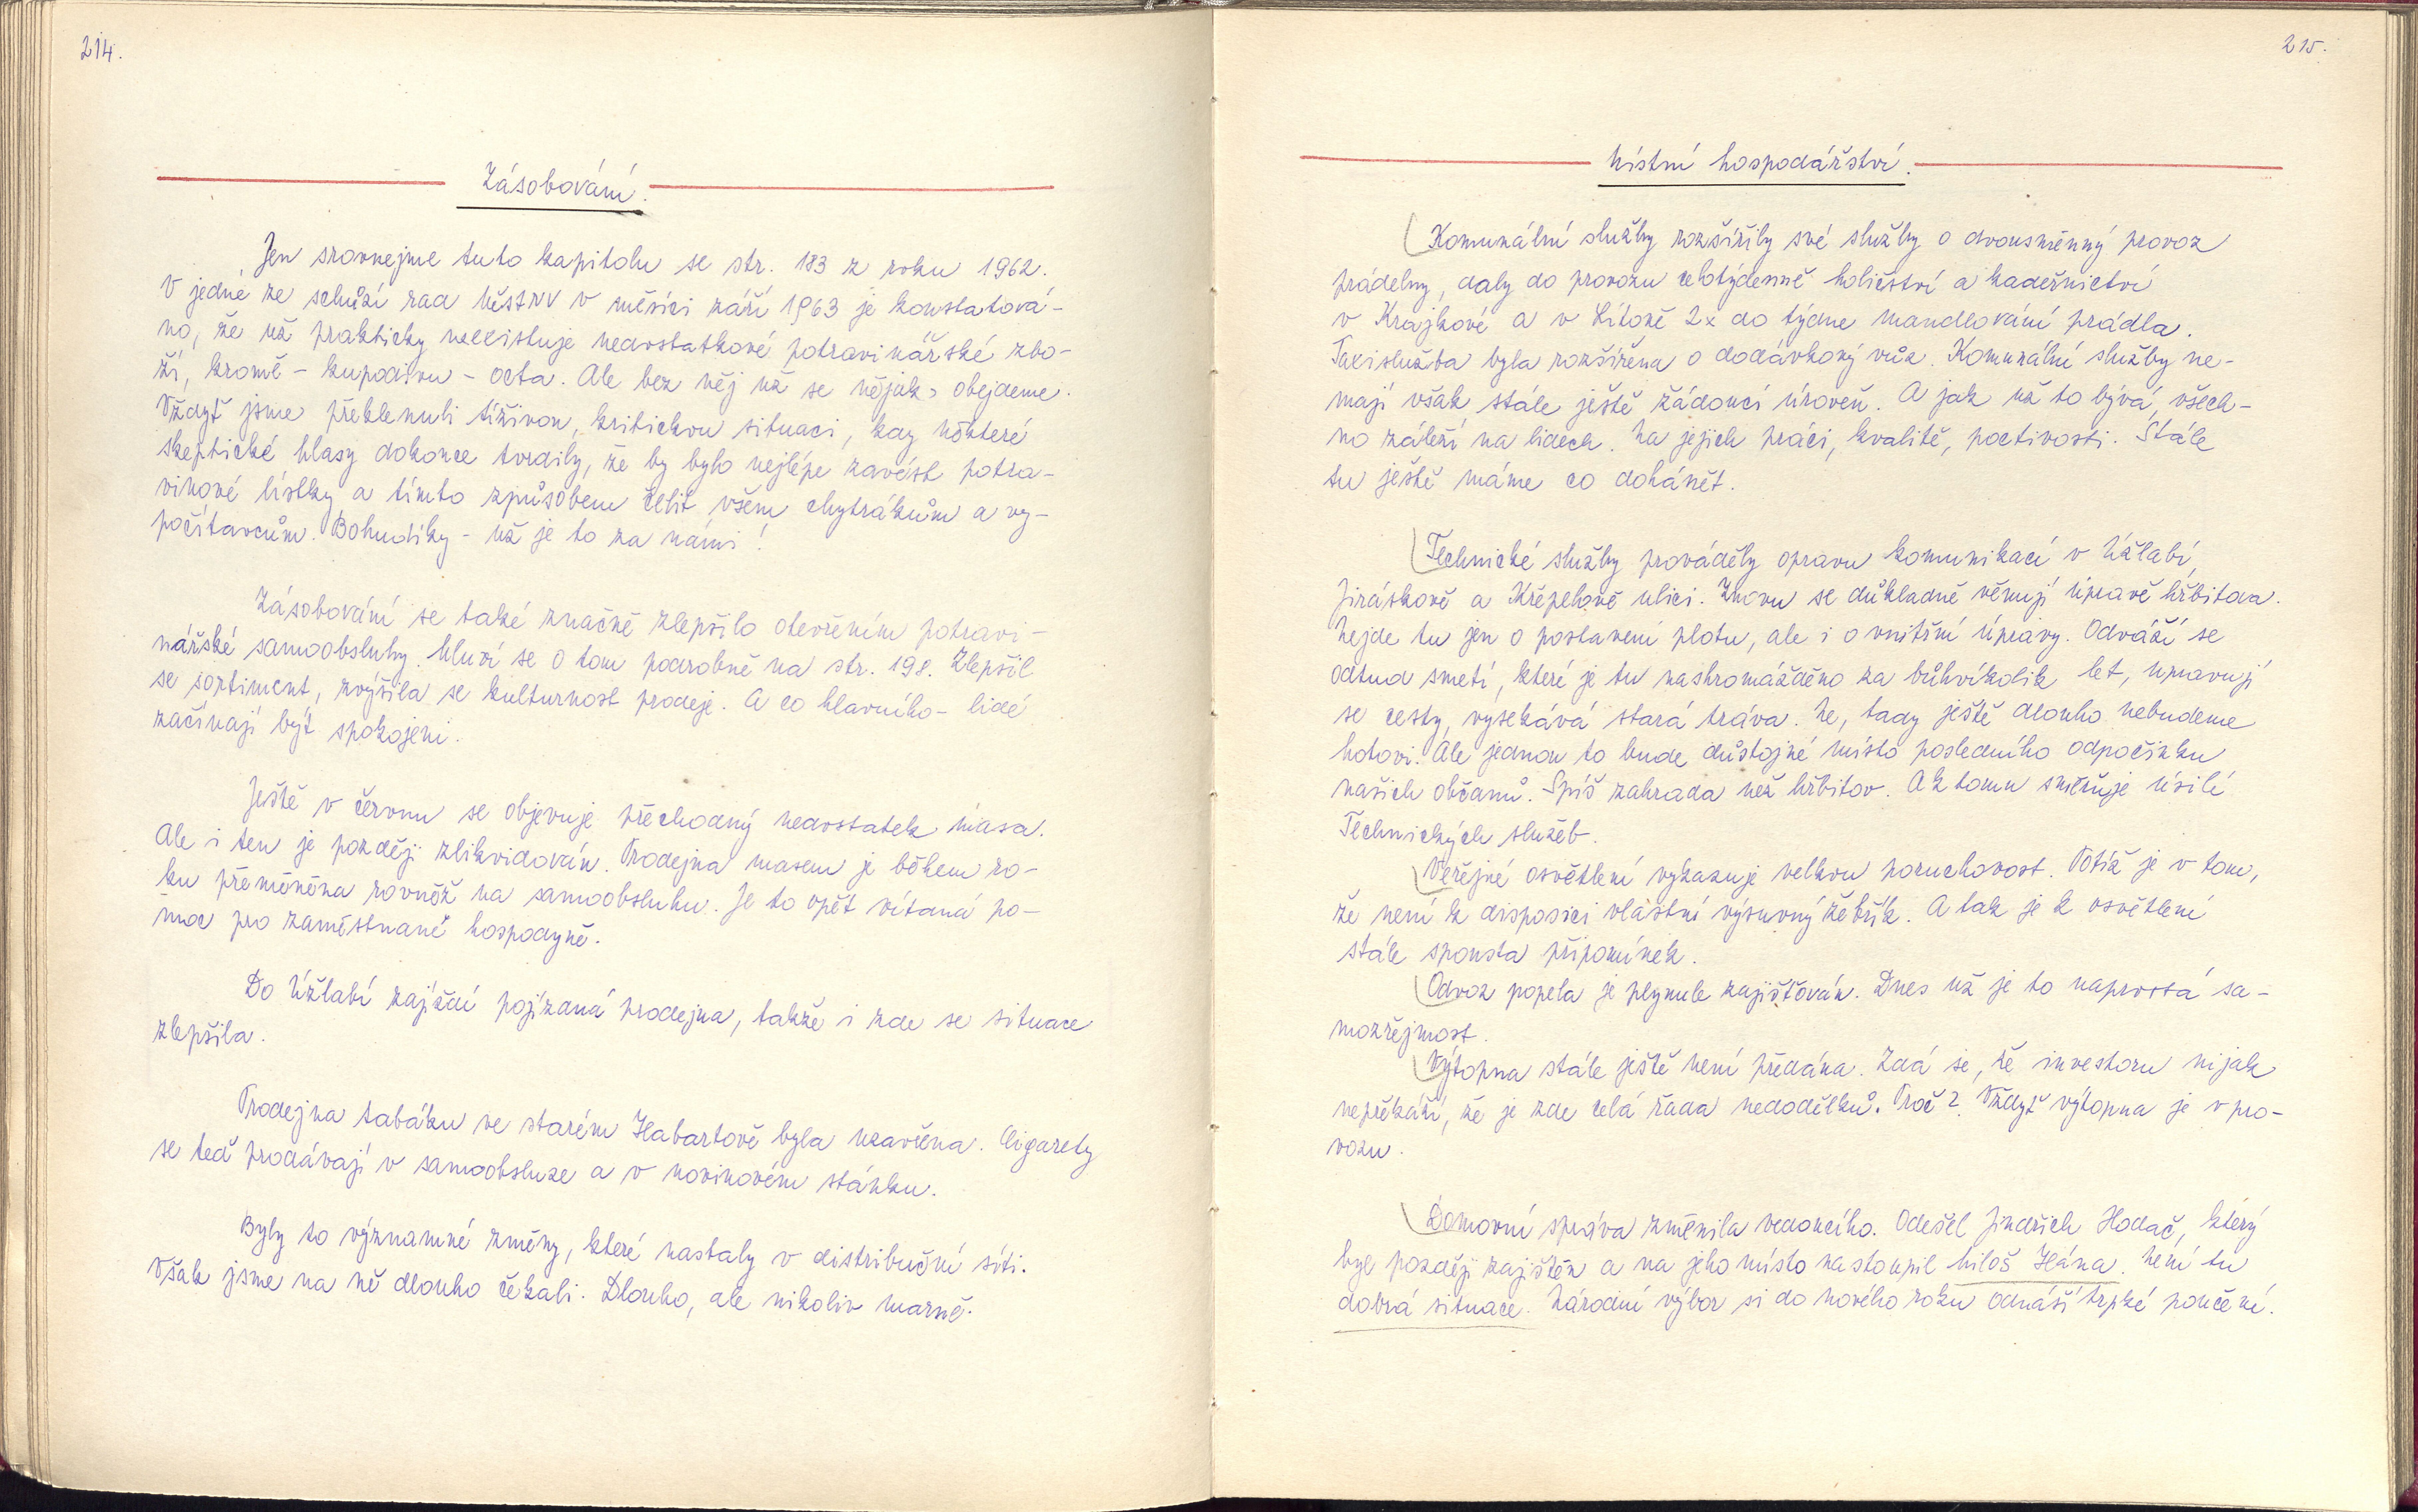 214.
Zásobování.
Jen srovnejme tuto kapitolu se str. 183 z roku 1962.
V jedné ze schůzí rad MěstNV v měsíci září 1963 je konstatová-
no, že už prakticky neexistuje nedostatkové potravinářské zbo-
ží, kromě - kupodivu - octa. Ale bez něj už se nějak obejdeme.
Vždyť jsme překlenuli tíživou, kritickou situaci, kdy některé
skeptické hlasy dokonce tvrdily, že by bylo nejlépe zavést potra-
vinové lístky a tímto způsobem čelit všem chytrákům a vy-
počítavcům. Bohudíky - už je to za námi!
Zásobování se také značně zlepšilo otevřením potravi-
nářské samoobsluhy. Mluví se o tom podrobně na str. 198. Zlepšil
se sortiment, zvýšila se kulturnost prodeje. A co hlavního - lidé
začínají být spokojeni.
Ještě v červnu se objevuje přechodný nedostatek masa.
Ale i ten je později zlikvidován. Prodejna masem je během ro-
ku přeměněna rovněž na samoobsluhu. Je to opět vítaná po-
moc pro zaměstnané hospodyně.
Do Úžlabí zajíždí pojízdná prodejna, takže i zde se situace
zlepšila.
Prodejna tabáku ve starém Habartově byla uzavřena. Cigarety
se teď prodávají v samoobsluze a v novinovém stánku.
Byly to významné změny, které nastaly v distribuční síti.
Však jsme na ně dlouho čekali. Dlouho, ale nikoliv marně.
215.
Místní hospodářství.
Komunální služby rozšířily své služby o dvousměnný provoz
prádelny, daly do provozu celotýdenně holičství a kadeřnictví
v Krajkové a v Lítově 2x do týdne mandlování prádla.
Taxislužba byla rozšířena o dodávkový vůz. Komunální služby ne-
mají však stále ještě žádoucí úroveň. A jak už to bývá, všech-
no záleží na lidech. Na jejich práci, kvalitě, poctivosti. Stále
tu ještě máme co dohánět.
Technické služby prováděly opravu komunikací v Úžlabí,
Jiráskově a Křepelově ulici. Znovu se důkladně věnují úpravě hřbitova.
Nejde tu jen o postavení plotu, ale i o vnitřní úpravy. Odváží se
odtud smetí, které je tu nashromážděno za bůhvíkolik let, upravují
se cesty, vysekává stará tráva. Ne, tady ještě dlouho nebudeme
hotovi. Ale jednou to bude důstojné místo posledního odpočinku
našich občanů. Spíš zahrada než hřbitov. A k tomu směřuje úsilí
Technických služeb.
Veřejné osvětlení vykazuje velkou poruchovost. Potíž je v tom,
že není k disposici vlastní výsuvný žebřík. A tak je k osvětlení
stále spousta připomínek.
Odvoz popela je plynule zajišťován. Dnes už je to naprostá sa-
mozřejmost.
Výtopna stále ještě není předána. Zdá se, že investoru nijak
nepřekáží, že je zde celá řada nedodělků. Proč? Vždyť výtopna je v pro-
vozu.
Domovní správa změnila vedoucího. Odešel Jindřich Hodač, který
byl později zajištěn a na jeho místo nastoupil Miloš Hána. Není tu
dobrá situace. Národní výbor si do nového roku odnáší trpké poučení.